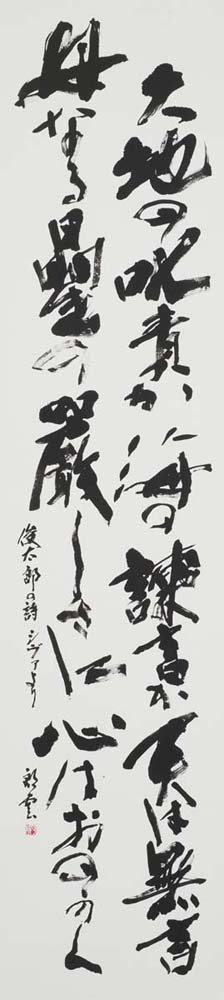 大地の叱責か海の諫言か天は無言
母なる星の厳しさに心はおののく
俊太郎の詩シヴァより
雲